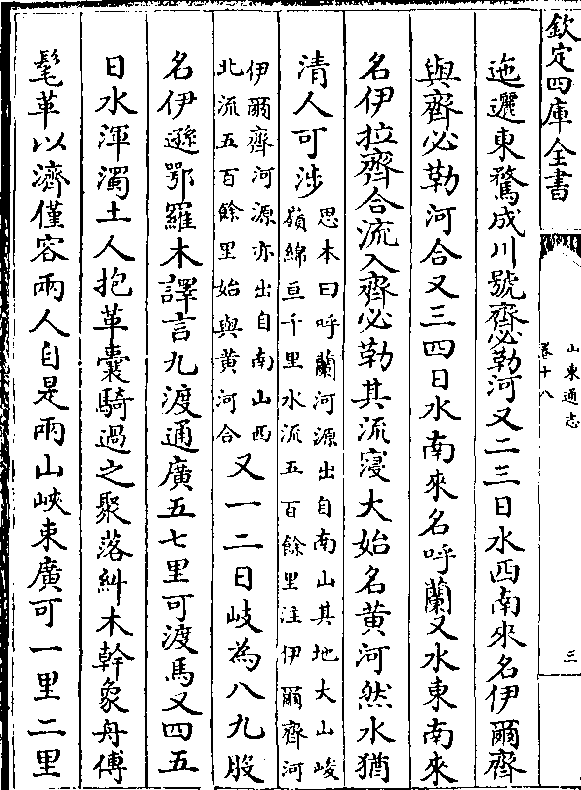 欽定四庫全書
山東通志
卷十八
三
迤邐東騖成川號齊必勒河又二三日水西南來名伊爾齊
與齊必勒河合又三四日水南來名呼蘭又水東南來
名伊拉齊合流入齊必勒其流寖大始名黄河然水猶
清人可涉
思本曰呼蘭河源出自南山其地大山峻
嶺綿亘千里水流五百餘里注伊爾齊河
伊爾齊河源亦出自南山西
北流五百餘里始與黄河合
又一二日岐為八九股
名伊遜鄂羅木譯言九渡通廣五七里可渡馬又四五
日水渾濁土人抱革囊騎過之聚落糾木幹象舟傅
髦革以濟僅容兩人自是兩山峽束廣可一里二里